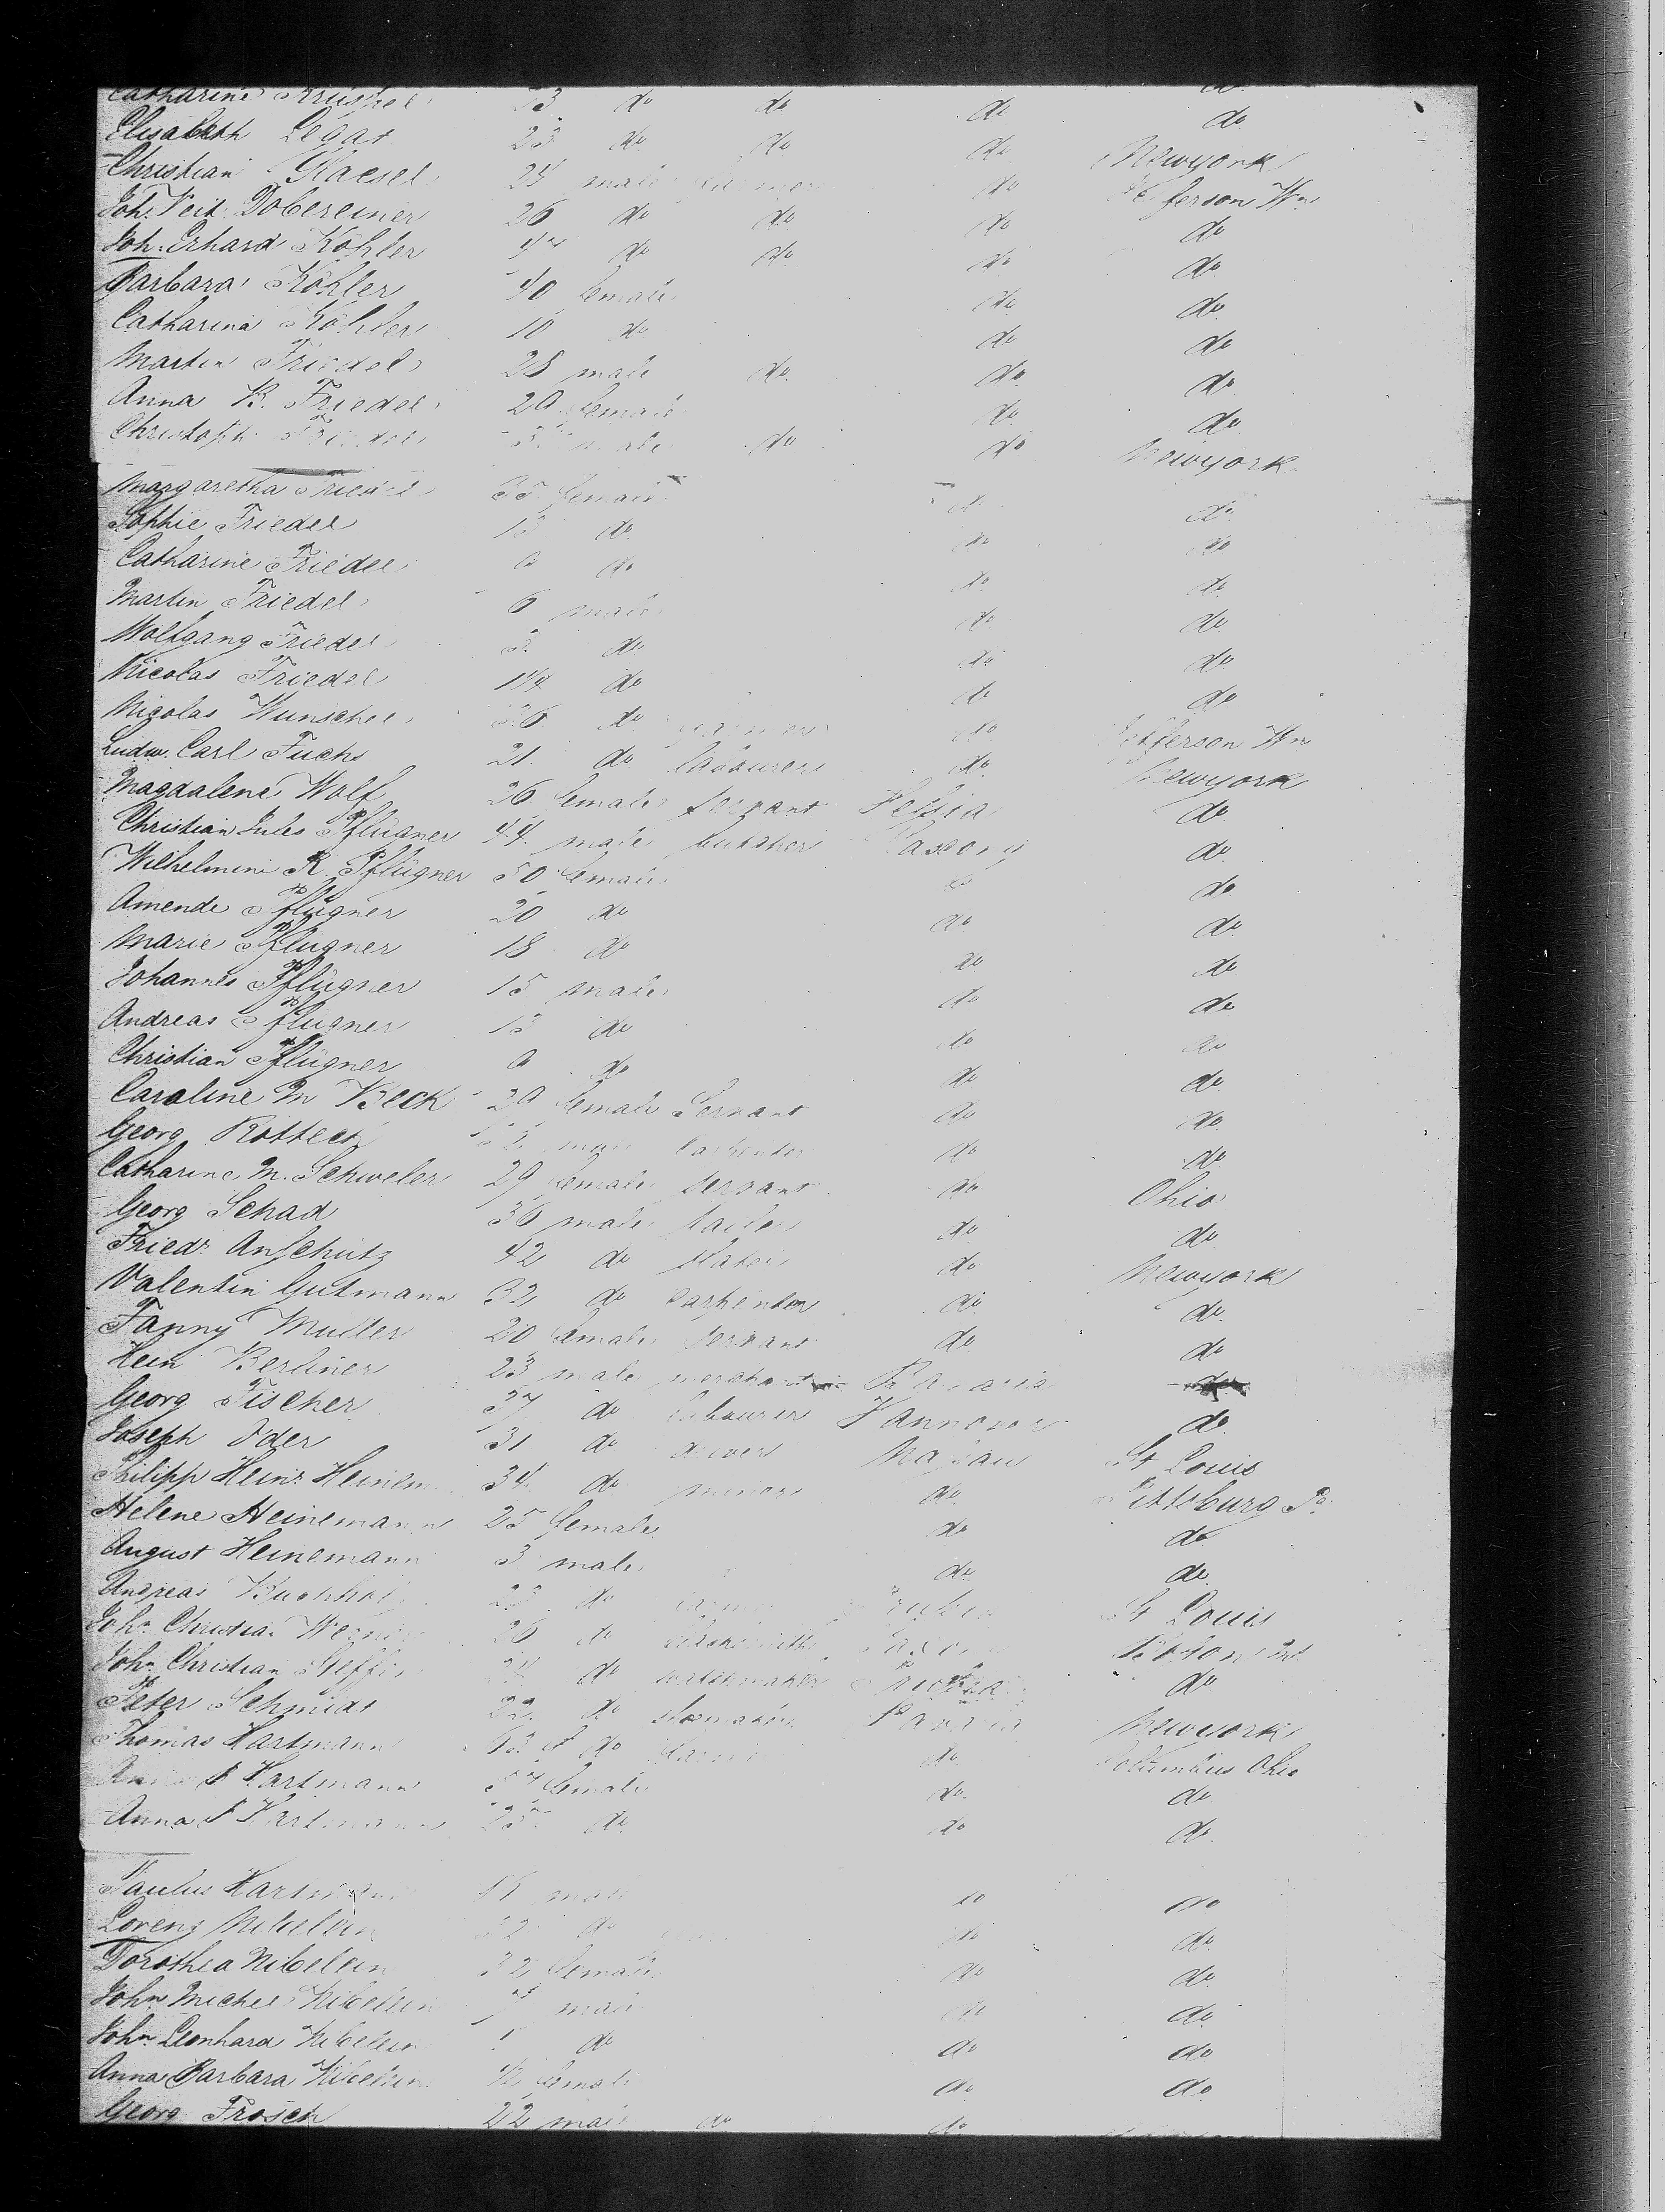 Catharine 33 do do do do
Elisabeth Legat 23 do do do do
Christian Glaesel 24 male farmer do Newyork
Joh. Veit Dobereiner 26 do do do Jefferson Wn
Joh. Erhard Köhler do do do do
Barbara Köhler 40 female do do
Catharina Köhler 10 do do do
Martin Friedel 28 male do do do
Anna B. Friedel 29 female do do
Christoph Friedel male do do Newyork
Margaretha Friedel 35 female do do
Sophie Friedel do do do
Catharine Friedel 9 do do do
Martin Friedel 6 male do do
Wolfgang Friedel 3 do do do
Nicolas Friedel 1/4 do do do
Nicolas Wunschel 36 do farmer do Jefferson Wn
Ludw. Carl Fuchs 21 do labourer do Newyork
Magdalene Wolf 26 female servant Hessia do
Christian Jules Pflügner 44 male butcher Saxony do
Wilhelmine K. Pflügner 50 female do do
Amende Pflügner 20 do do do
Marie Pflugner 18 do do do
Johannes Pflügner 15 male do do
Andreas Pflugner 13 do do do
Christian Pflügner 9 do do do
Caroline M Beck 29 female Servant do do
Georg Rotteck male carpenter do do
Catharine M. Schweler 29 female servant do Ohio
Georg Schad 36 male tailor do do
Friedr. Anschütz 42 do do Newyork
Valentin Gutmann 32 do carpenter do do
Fanny Muller 20 female servant do do
Hein Berliner 23 male merchant Bavaria do
Georg Fischer 37 do labourer Hannover do
Joseph Oder 31 do Nassau St Louis
Philipp Heinr. Heinem 34 do miner do Pittsburg Pa.
Helene Heinemann 25 female do do
August Heinemann 3 male do do
Andreas Buchhol 23 do St Louis
John Christian 26 do blacksmith Saxony
John Christian do watchmaker do
Peter Schmidt 22 do shoemaker Bavaria Newyork
Thomas Hartmann 63 do do Columbus Ohio
Hartmann 57 female do do
Anna Hartmann 25 do do do
Paulus Hartmann male do do
Lorenz Nibelein do do do
Dorothea Nibelein 32 female do do
John Michel Nibelein 7 male do do
John Leonhard Nibelein do do do
Anna Barbara Nibelein female do do
Georg Frosch 22 male do do